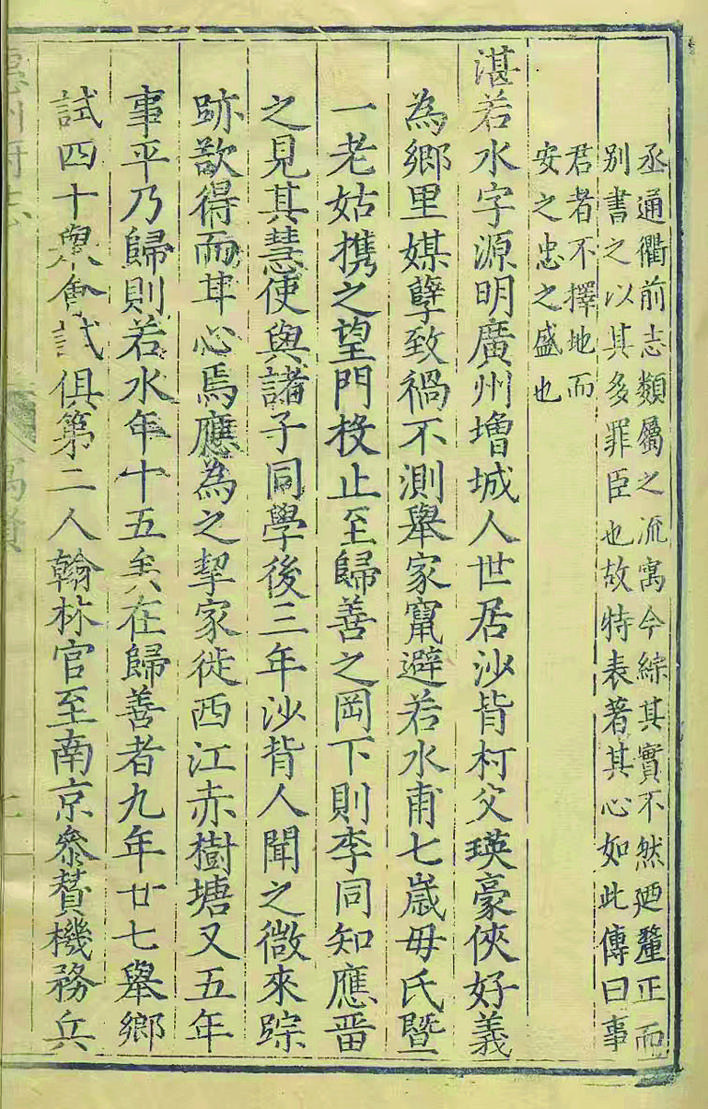 丞通衢前志類屬之流寓今綜其實不然廼釐正而
別書之以其多罪臣也故特表著其心如此傳曰事
君者不擇地而
安之忠之盛也
湛若水字源明廣州增城人世居沙背柯父瑛豪俠好義
為鄉里媒孽致禍不測舉家竄避若水甫七歲毋氏暨
一老姑携之望門投止至歸善之岡下則李同知應畨
之見其慧使與諸子同學後三年沙背人聞之微來踪
跡歆得而其心焉應為之挈家徙西江赤樹塘又五年
事平乃歸則若水年十五矣在歸善者九年廿七舉鄉
試四十舉會試俱第二人翰林官至南京參贊機務兵
惠州府志
寓賢